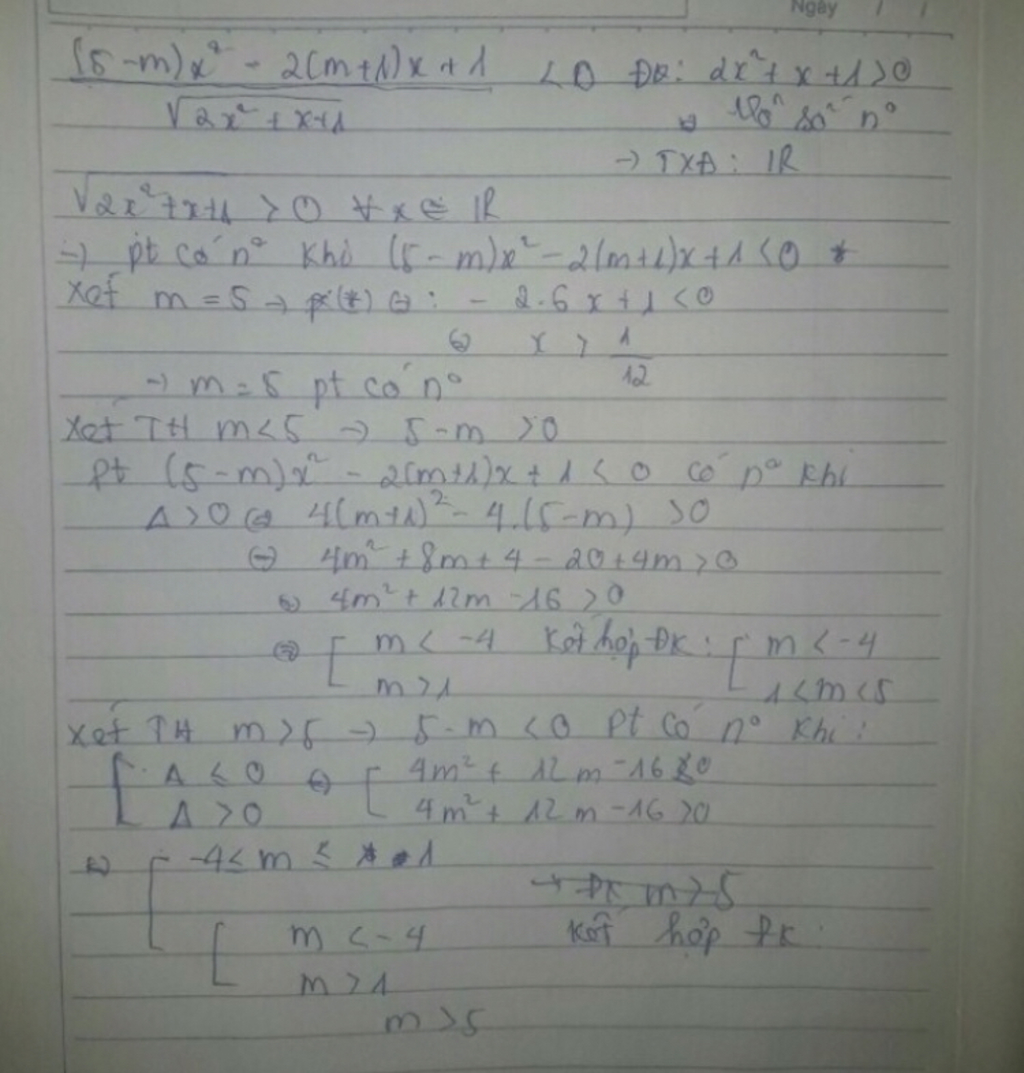 Ngày / /
(5-m)x² - 2(m+1)x + 1 < 0 ĐK: 2x² + x + 1 > 0
√2x² + x+1 ⇔ n°
→ TXĐ: ℝ
√2x²+x+1 > 0 ∀x ∈ ℝ
→ pt có n° khi (5-m)x² - 2(m+1)x + 1 < 0 *
Xét m = 5 → (*) ⇔: - 2.6x + 1 < 0
⇔ x > 1/12
→ m = 5 pt có n°
Xét TH m < 5 → 5-m > 0
pt (5-m)x² - 2(m+1)x + 1 < 0 có n° khi
Δ > 0 ⇔ 4(m+1)² - 4.(5-m) > 0
⇔ 4m² + 8m + 4 - 20 + 4m > 0
⇔ 4m² + 12m - 16 > 0
⇔ [ m < -4 Kết hợp ĐK: [ m < -4
m > 1 1 < m < 5
Xét TH m > 5 → 5-m < 0 Pt có n° khi:
[ Δ ≤ 0 ⇔ [ 4m² + 12m - 16 ≤ 0
Δ > 0 4m² + 12m - 16 > 0
⇔ [ -4 ≤ m ≤ 1
→ ĐK m > 5
[ m < -4 Kết hợp ĐK
m > 1
m > 5